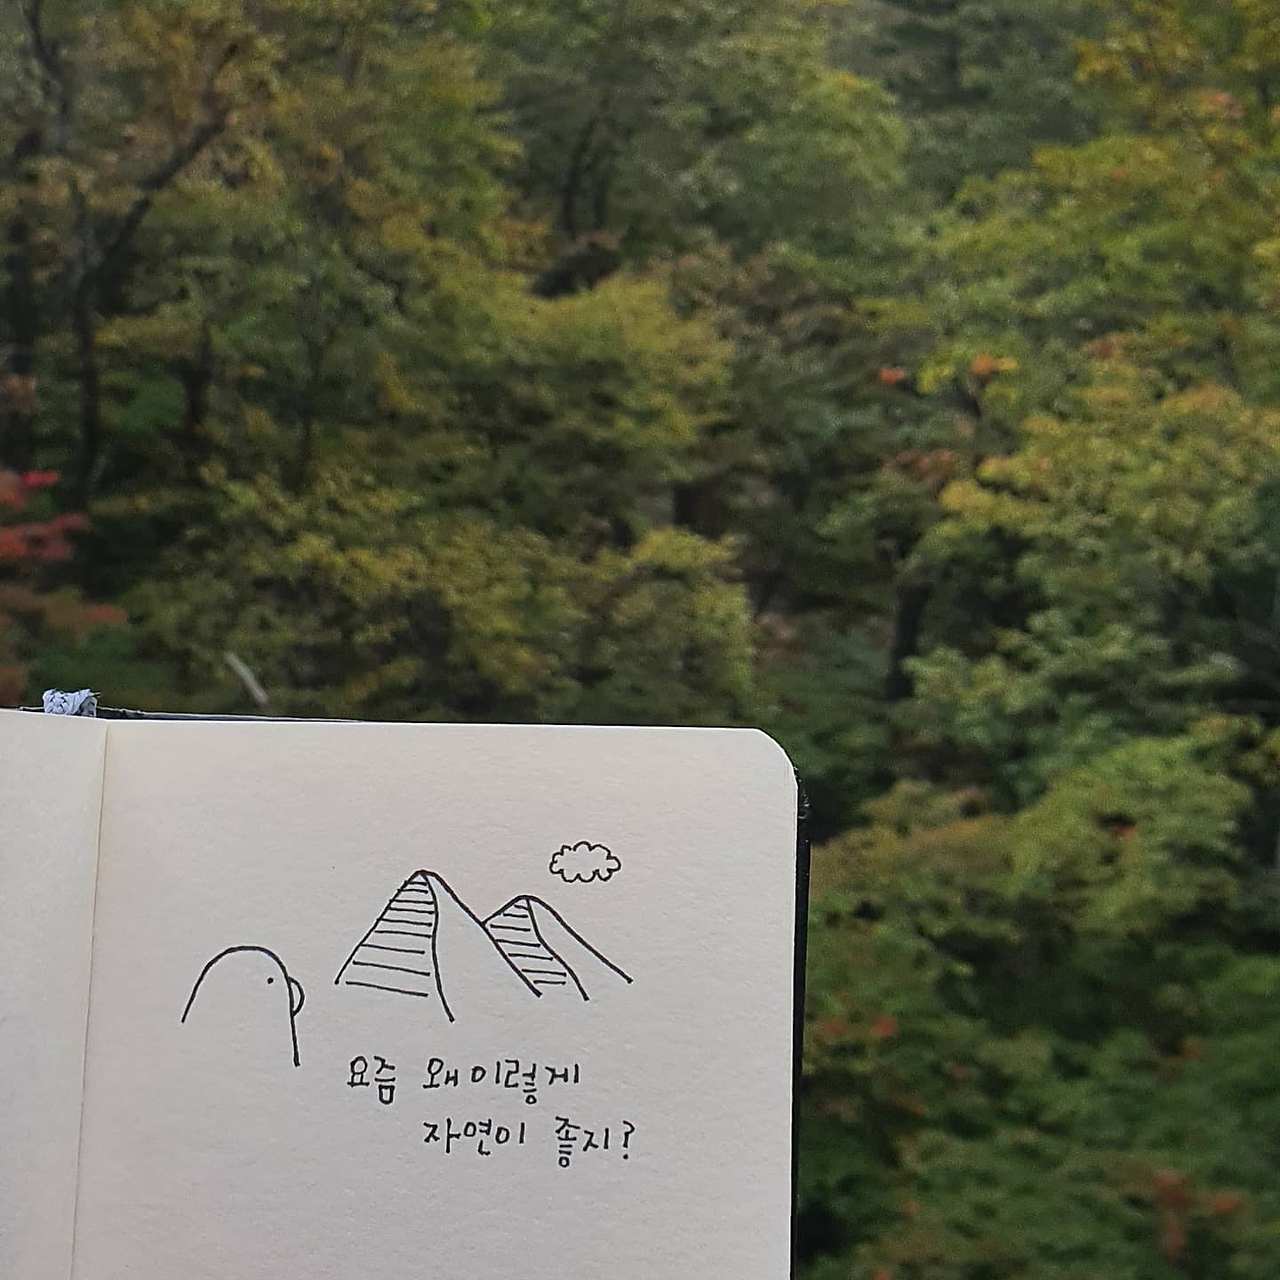 요즘 왜 이렇게
자연이 좋지?